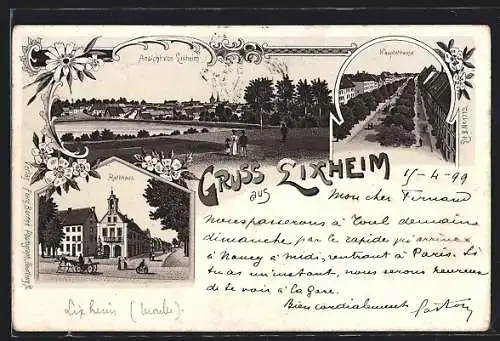 Ansicht von Lixheim
Hauptstrasse
Gruss
aus
Lixheim
Rathhaus
15-4-99
Mon cher Fernand
Nous passerons à Toul demain
dimanche par le rapide qui arrive
à Nancy à midi, rentrant à Paris. Si
tu as un instant, nous serons heureux
de te voir à la gare.
Bien cordialement Gaston
Lixheim (Moselle).